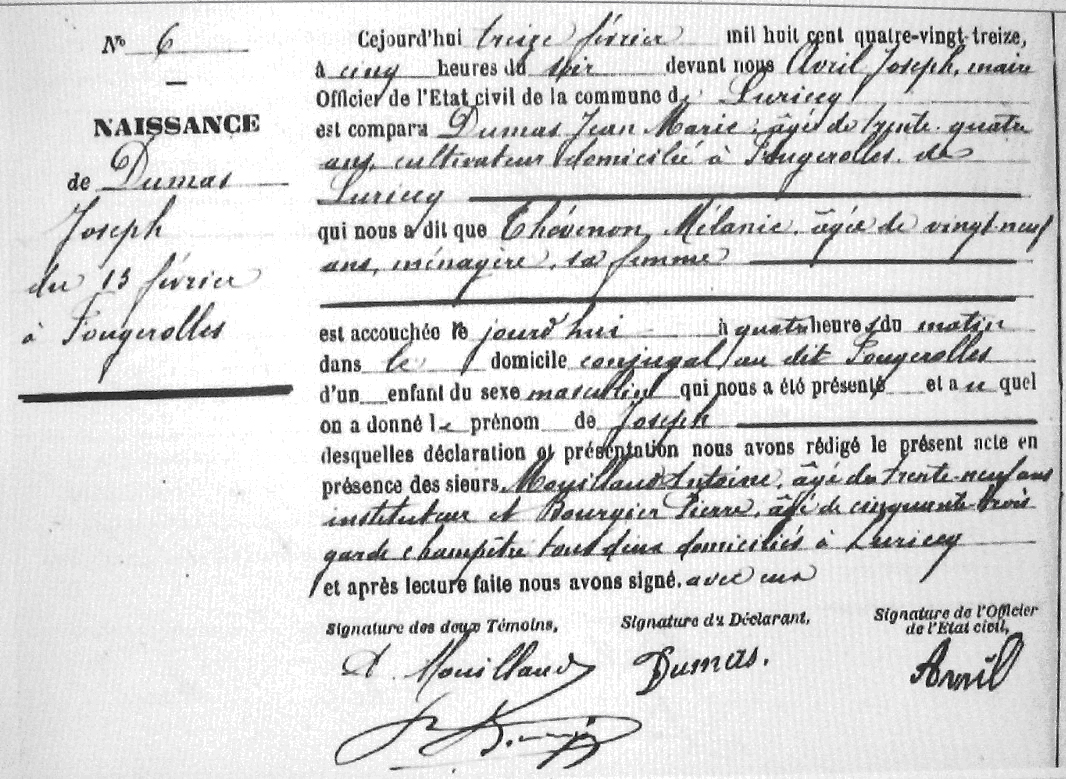 N° 6
NAISSANCE
de Dumas
Joseph
du 13 février
à Fougerolles
Cejourd'hui treize février mil huit cent quatre-vingt-treize,
à cinq heures du soir devant nous Avril Joseph, maire
Officier de l'Etat civil de la commune de Luriecq
est comparu Dumas Jean Marie, âgé de trente quatre
ans, cultivateur domicilié à Fougerolles de
Luriecq
qui nous a dit que Thévenon, Mélanie, âgée de vingt-neuf
ans, ménagère, sa femme
est accouchée le jourd'hui à quatre heures du matin
dans le domicile conjugal au dit Fougerolles
d'un enfant du sexe masculin qui nous a été présenté et auquel
on a donné le prénom de Joseph
desquelles déclaration et présentation nous avons rédigé le présent acte en
présence des sieurs Mouillaud Antoine, âgé de trente-neuf ans
instituteur et Bourgier Pierre, âgé de cinquante-trois
garde champêtre tous deux domiciliés à Luriecq
et après lecture faite nous avons signé. avec eux
Signature des deux Témoins,
Signature du Déclarant,
Signature de l'Officier
de l'Etat civil,
A. Mouillaud
Dumas.
Avril